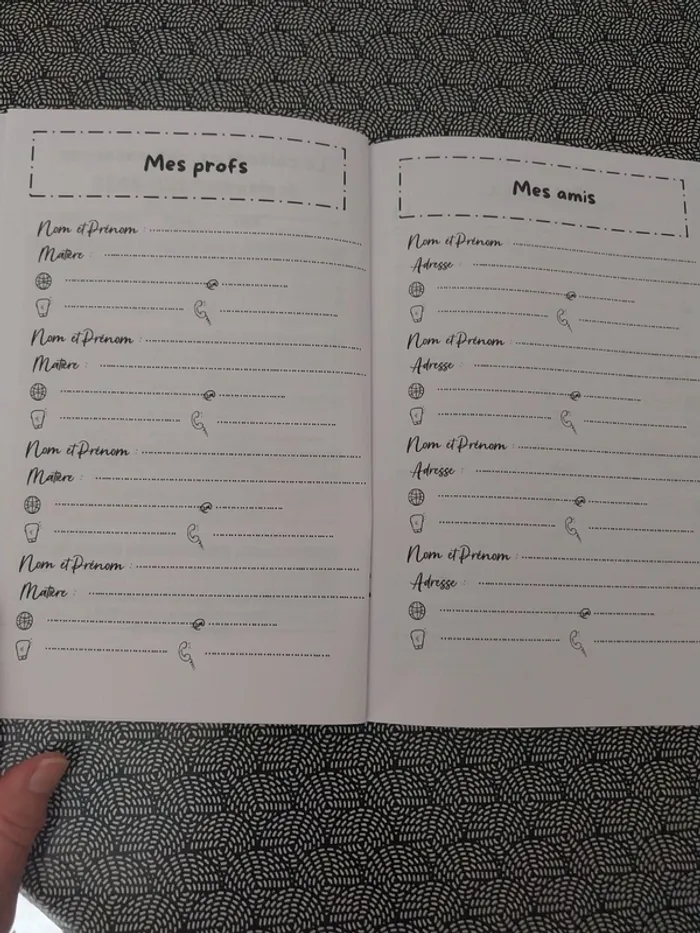 Mes profs
Nom et Prénom :
Matière :
@
Nom et Prénom :
Matière :
@
Nom et Prénom :
Matière :
@
Nom et Prénom :
Matière :
@
Mes amis
Nom et Prénom :
Adresse :
@
Nom et Prénom :
Adresse :
@
Nom et Prénom :
Adresse :
@
Nom et Prénom :
Adresse :
@